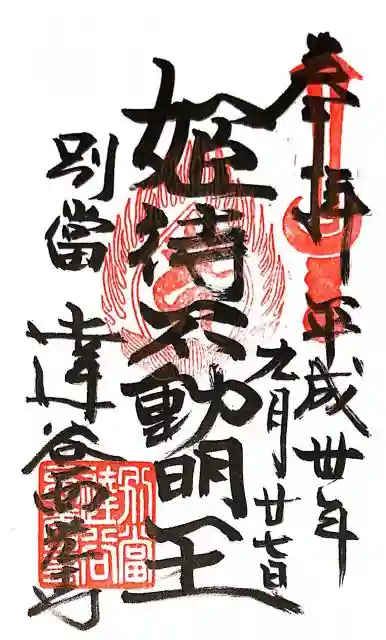 奉拝 平成卅年
九月廿七日
姫待不動明王
別當
達谷西光寺
別當達谷西光寺